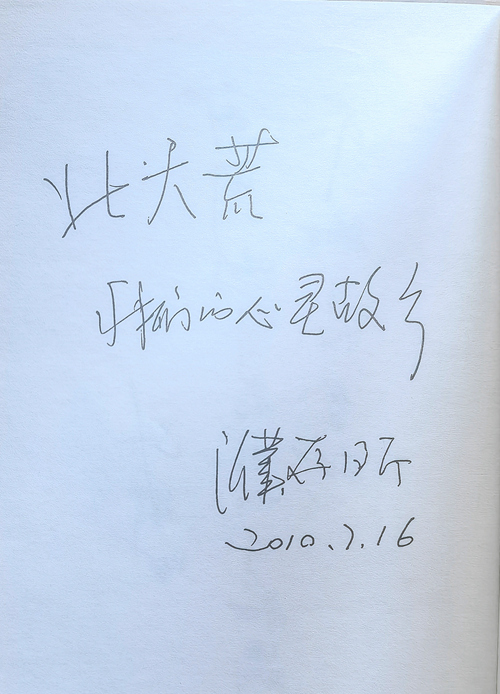 北大荒
我们的心灵故乡
濮存昕
2010.7.16